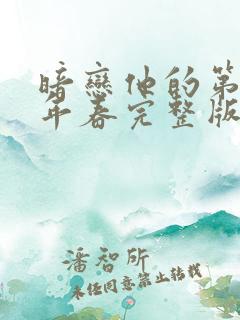 暗戀他的第
年春完整版
潘智所
未任同意禁止转载